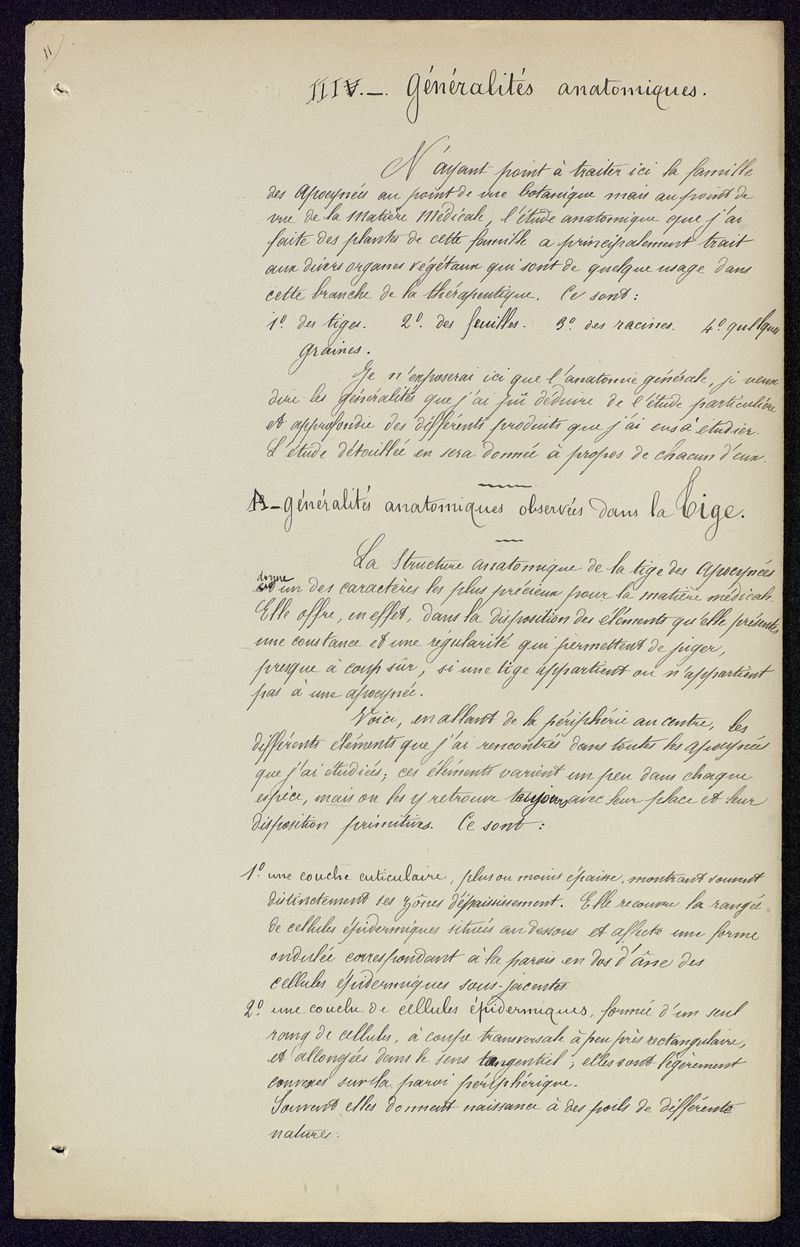 11
IIIV. — Généralités anatomiques.
N'ayant point à traiter ici la famille
des Apocynées au point de vue botanique mais au point de
vue de la Matière Médicale, l'étude anatomique que j'ai
faite des plantes de cette famille a principalement trait
aux divers organes végétaux qui sont de quelque usage dans
cette branche de la thérapeutique. Ce sont :
1º. des tiges. 2º. des feuilles. 3º. des racines. 4º. quelques
graines.
Je n'exposerai ici que l'anatomie générale, je veux
dire les généralités que j'ai pû déduire de l'étude particulière
et approfondie des différents produits que j'ai eus à étudier.
L'étude détaillée en sera donnée à propos de chacun d'eux.
A — Généralités anatomiques observées dans la Tige.
La Structure anatomique de la tige des Apocynées
donne
un des caractères les plus précieux pour la matière médicale.
Elle offre, en effet, dans la disposition des éléments qu'elle présente,
une constance et une régularité qui permettent de juger,
presque à coup sûr, si une tige appartient ou n'appartient
pas à une apocynée.
Voici, en allant de la périphérie au centre, les
différents éléments que j'ai rencontrés dans toutes les Apocynées
que j'ai étudiées; ces éléments varient un peu dans chaque
espèce, mais on les y retrouve toujours avec leur place et leur
disposition primitives. Ce sont :
1º. une couche cuticulaire, plus ou moins épaisse, montrant souvent
distinctement ses zônes d'épaississement. Elle recouvre la rangée
de cellules épidermiques situées au dessous et affecte une forme
ondulée correspondant à la parois en dos d'âne des
cellules épidermiques sous-jacentes
2º. une couche de cellules épidermiques, formée d'un seul
rang de cellules, à coupe transversale à peu près rectangulaire,
et allongées dans le sens tangentiel; elles sont légèrement
convexes sur la paroi périphérique.
Souvent elles donnent naissance à des poils de différente
nature.